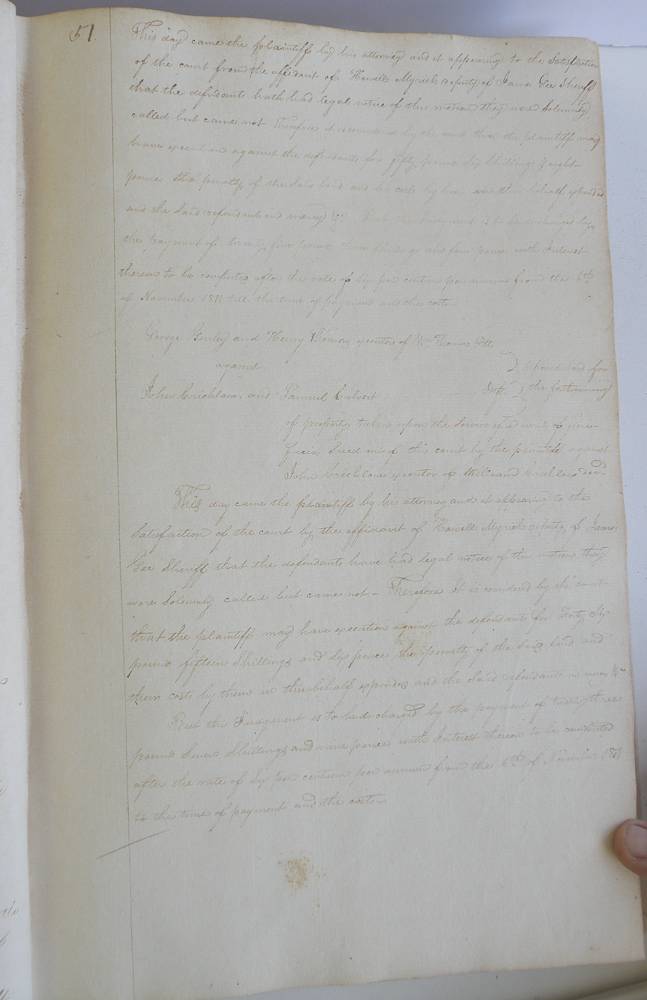 51
This day came the plaintiff by his attorney and it appearing to the Satisfaction
of the court from the affidavit of Howell Myrick deputy of James Gee Sheriff
that the defendants hath had legal notice of this motion they were Solemnly
called but came not Therefore it is considered by the court that the plaintiff may
have execution against the defendants for fifty pounds Six Shillings & eight
pence the penalty of the Said bond and his costs by him in this behalf expended
and the Said defendants in mercy &c But this Judgment is to be discharged by
the payment of twenty five pounds three Shillings and four pence with Interest
thereon to be computed after the rate of Six per centum per annum from the 6th
of November 1811 till the time of payment and the costs
George and Henry executors of Thomas
against
upon a bond for
John Crichlow and Samuel Calvert Defts the forthcoming
of property taken upon the Service of a writ of fiere
facias Sued out of this court by the plaintiffs against
John Crichlow executor of Crichlow decd.
This day came the plaintiffs by his attorney and it appearing to the
Satisfaction of the court by the affidavit of Howell Myrick deputy of James
Gee Sheriff that the defendants have had legal notice of this motion they
were Solemnly called but came not - Therefore It is considered by the court
that the plaintiffs may have execution against the defendants for forty Six
pounds fifteen Shillings and Six pence the penalty of the Said bond and
their costs by them in this behalf expended and the Said defendants in mercy &c
But this Judgment is to be discharged by the payment of twenty three
pounds Seven Shillings and nine pence with Interest thereon to be computed
after the rate of Six per centum per annum from the 6th of November 1811
to the time of payment and the costs